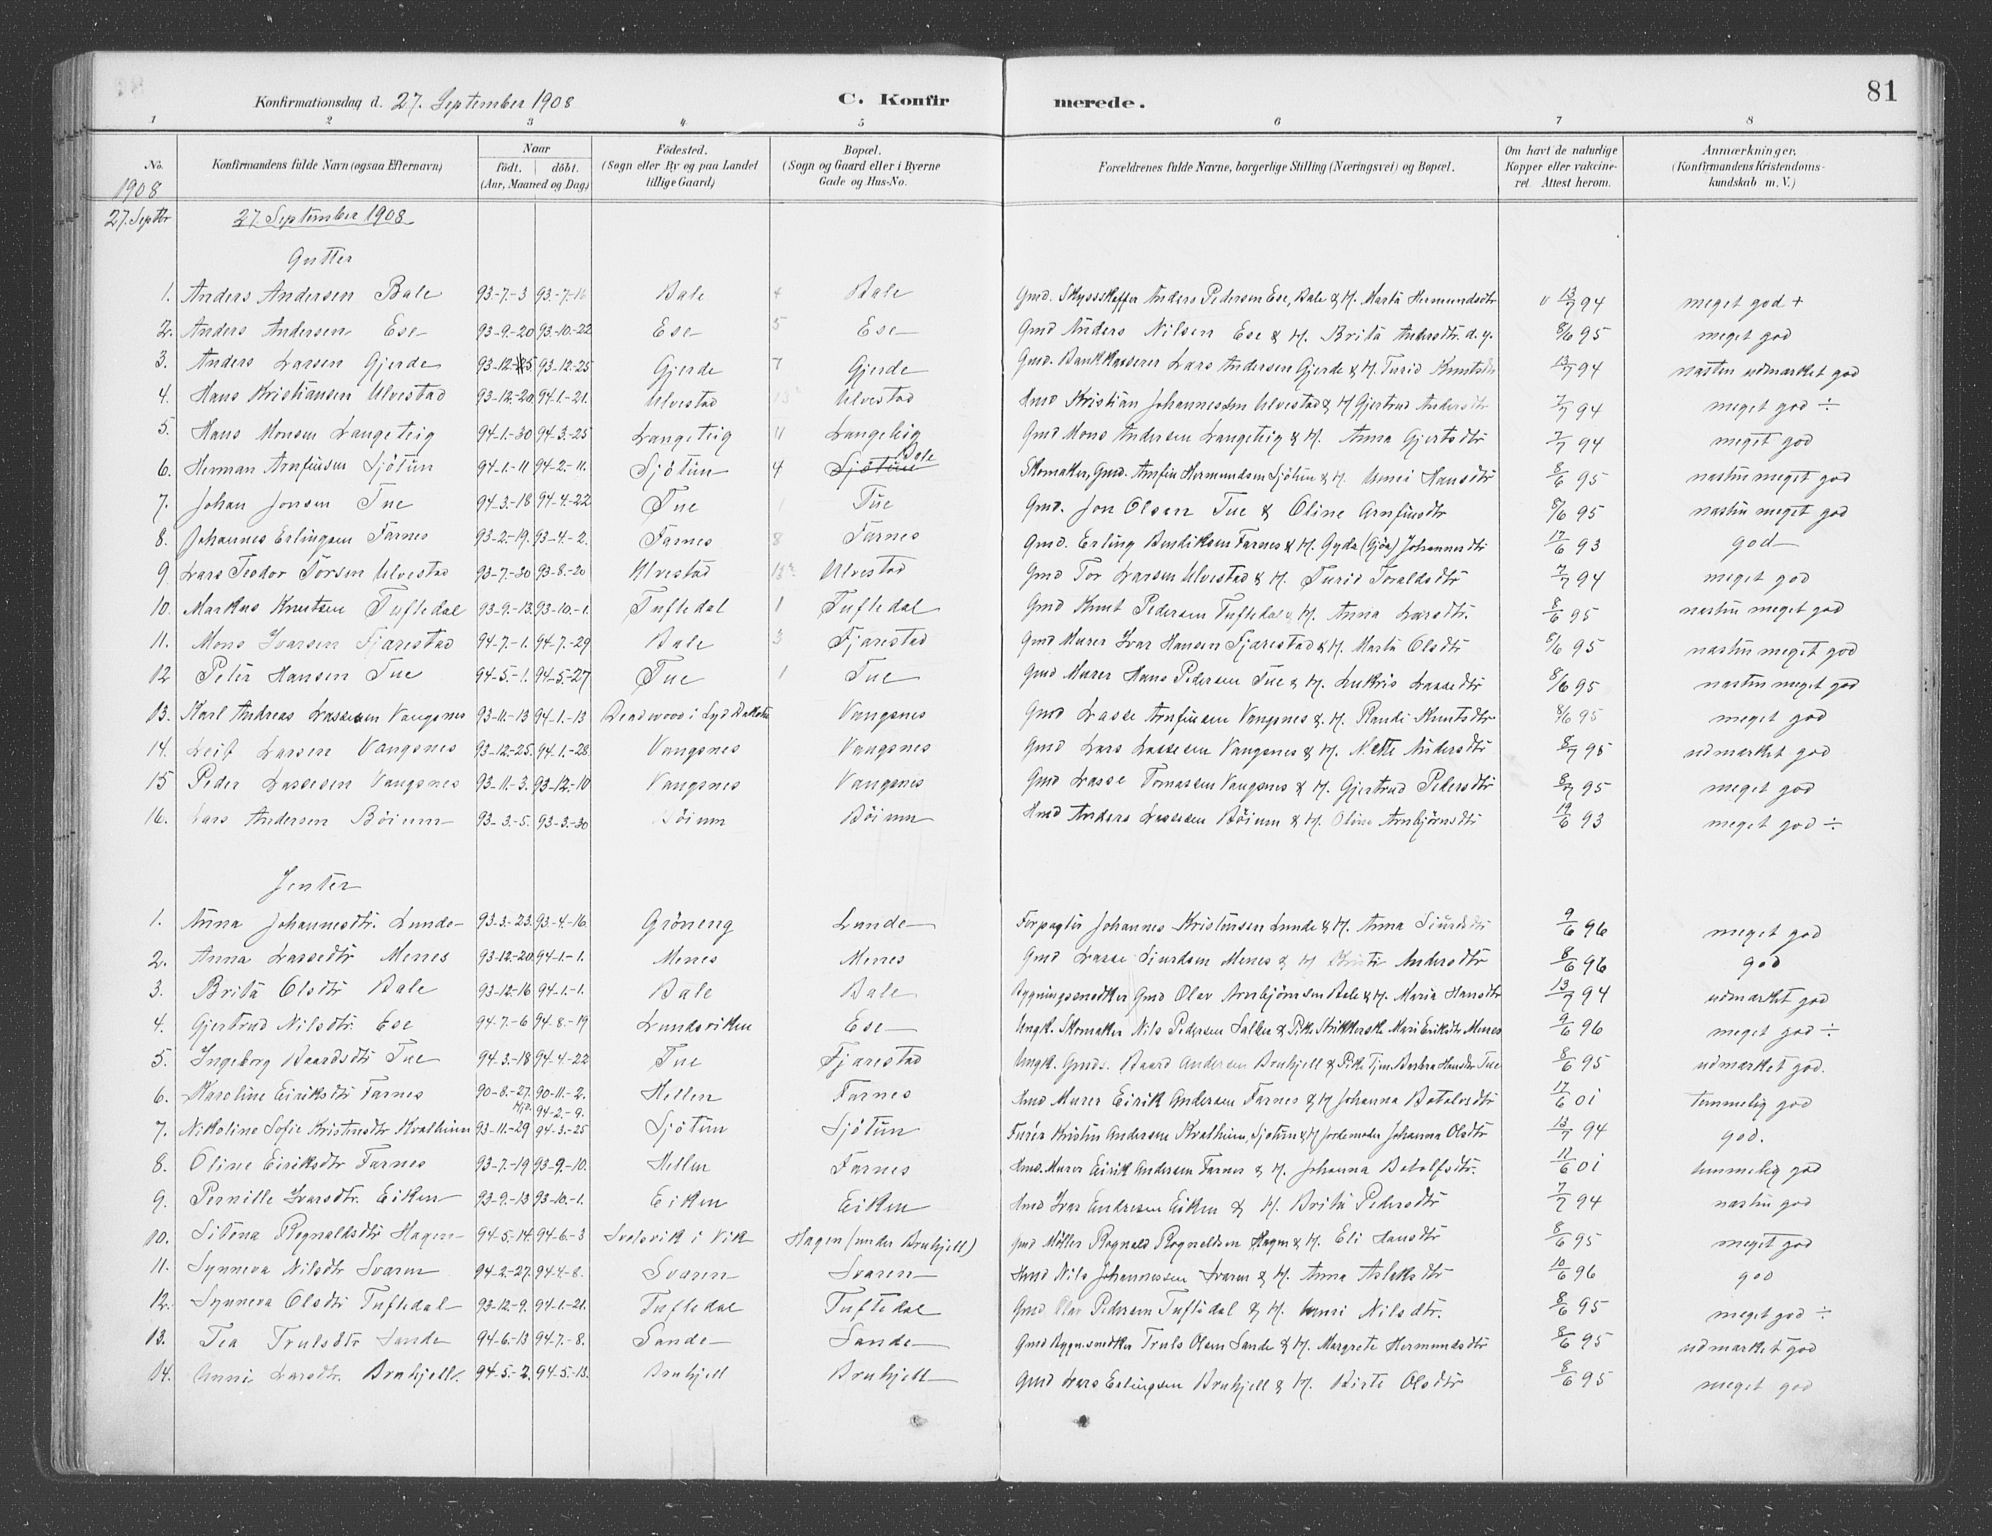 81
Konfirmationsdag d. 27. September 1908 C. Konfirmerede.
1 2 3 4 5 6 7 8
No. Konfirmandens fulde Navn (ogsaa Efternavn) Naar født. døbt. (Aar, Maaned og Dag) Fødested. (Sogn eller By og paa Landet tillige Gaard) Bopæl. (Sogn og Gaard eller i Byerne Gade og Hus-No.) Forældrenes fulde Navne, borgerlige Stilling (Næringsvei) og Bopæl. Om havt de naturlige Kopper eller vaccineret. Attest herom. Anmærkninger, (Konfirmandens Kristendomskundskab m. V.)
1908
27. Septbr 27 September 1908
Gutter
1. Anders Andersen Bale 93-7-3 93-7-16 Bale 4 Bale Gmd. Skysskaffer Anders Pedersen Ese, Bale & H. Marta Hermundsdtr 13/7 94 meget god +
2. Anders Andersen Ese 93-9-20 93-10-22 Ese 5 Ese Gmd Anders Nilsen Ese & H. Brita Andersdtr d.y. 8/6 95 meget god
3. Anders Larsen Gjerde 93-12- 93-12-25 Gjerde 7 Gjerde Gmd. Bankkasserer Lars Andersen Gjerde & H. Turid Knutsdtr 13/7 94 næsten udmærket god
4. Hans Kristiansen Ulvestad 93-12-20 94-1-21 Ulvestad Ulvestad Hmd Kristian Johannesen Ulvestad & H Gjertrud Andersdtr 7/7 94 meget god ÷
5. Hans Monsen Langeteig 94-1-30 94-3-25 Langeteig 11 Langeteig Gmd Mons Andersen Langeteig & H. Anna Gjertsdtr 7/7 94 meget god
6. Herman Arnfinsen Sjötun 94-1-11 94-2-11. Sjötun 4 Sjötun Bale Skomaker, Gmd. Arnfin Hermundsen Sjötun & H. Unni Hansdtr 8/6 95 næsten meget god
7. Johan Jonsen Tue 94-3-18 94-4-22 Tue 1 Tue Gmd. Jon Olsen Tue & Oline Arnfinsdtr 8/6 95 næsten meget god
8. Johannes Erlingsen Farnes 93-2-19. 93-4-2. Farnes 8 Farnes Gmd. Erling Bendiksen Farnes & H. Gyda (Gjöa) Johannesdtr 17/6 93 god
9 Lars Teodor Torsen Ulvestad 93-7-30 93-8-20 Ulvestad Ulvestad Gmd Tor Larsen Ulvestad & H. Turid Toraldsdtr 7/7 94 meget god
10. Markus Knutsen Tuftedal 93-9-13. 93-10-1. Tuftedal 1 Tuftedal Gmd Knut Pedersen Tuftedal & H. Anna Larsdtr. 8/6 95 næsten meget god
11. Mons Ivarsen Fjærestad 94-7-1. 94-7-29 Bale 3 Fjærestad Gmd Murer Ivar Hansen Fjærestad & H. Marta Olsdtr 8/6 95 næsten meget god
12 Peter Hansen Tue 94-5-1. 94-5-27 Tue 1 Tue Gmd Murer Hans Pedersen Tue & H. Lukris Lassedtr 8/6 95 næsten meget god
13. Karl Andreas Lassesen Vangsnes 93-11-13 94-1-13 Deadwood i Syd Dakota Vangsnes Gmd Lasse Arnfinsen Vangsnes & H. Randi Knutsdtr 8/6 95 meget god
14. Leif Larsen Vangsnes 93-12-25. 94-1-28. Vangsnes Vangsnes Gmd Lars Lassesen Vangsnes & H. Mette Andersdtr 8/7 95 udmærket god
15 Peder Lassesen Vangsnes 93-11-3. 93-12-10 Vangsnes Vangsnes Gmd Lasse Tomassen Vangsnes & H. Gjertrud Pedersdtr 8/7 95 meget god
16. Lars Andersen Böium 93-3-5. 93-3-30 Böium Böium Hmd Anders Lassesen Böium & H. Oline Arnbjörnsdtr 19/6 93 meget god ÷
Jenter
1. Anna Johannesdtr. Lunde 93-3-23. 93-4-16. Gröneng Lunde Forpagter Johannes Kristensen Lunde & H. Anna Siursdtr 9/6 96 meget god
2. Anna Lassedtr Menes 93-12-20. 94-1-1. Menes Menes Gmd Lasse Siurdsen Menes & H Kristi Andersdtr 8/6 96 god
3. Brita Olsdtr Bale 93-12-16 94-1-1. Bale Bale Bygningssnedker Gmd Olav Arnbjörnsen Bale & H. Maria Hansdtr 13/7 94 udmærket god
4. Gjertrud Nilsdtr. Ese 94-7-6 94-8-19 Lundsviken Ese Ungk. Skomaker Nils Pedersen & Pike Strikkersk. Mari Eriksdtr Menes 9/6 96 meget god ÷
5. Ingeborg Baardsdtr Tue 94-3-18 94-4-22 Tue Fjærestad Ungk. Gmds. Baard Andersen Brekjell & Pike Tjen. Barbra Hansdtr Tue 8/6 95 udmærket god.
6. Karoline Eiriksdtr Farnes 90-8-27. 90-11-2. Hellen Farnes Hmd Murer Eirik Andersen Farnes & H Johanna Botolvsdtr 17/6 01 temmelig god
7. Nikoline Sofie Kristensdtr Kvathum 93-11-29 Hjd. 94-2-9. 94-3-25 Sjötun Sjötun Furér Kristen Andersen Kvathum, Sjötun & H Jordemoder Johanna Olsdtr 13/7 94 god.
8. Oline Eiriksdtr Farnes 93-7-19 93-9-10. Hellen Farnes Hmd. Murer Eirik Andersen Farnes & H. Johanna Botolfsdtr. 17/6 01 temmelig god
9. Pernille Ivarsdtr. Eiken 93-9-13 93-10-1. Eiken Eiken Hmd Ivar Andresen Eiken & H. Brita Pedersdtr 7/7 94 næsten god
10. Sitena Rognaldsdtr Hagen 94-5-14. 94-6-3 i Vik Hagen (under Brekjell) Gmd Möller Rognald Rognaldsen Hagen & H. Eli Hansdtr 8/6 95 meget god
11. Synneva Nilsdtr Svaren 94-2-27. 94-4-8. Svaren Svaren Hmd Nils Johannessen Svaren & H. Anna Aslaksdtr 10/6 96 god
12. Synneva Olsdtr Tuftedal 93-12-9. 94-1-21. Tuftedal Tuftedal Gmd Olav Pedersen Tuftedal & H. Unni Nilsdtr. 8/6 95 meget god ÷
13. Tea Trulsdtr Sande 94-6-13 94-7-8. Sande Sande Gmd Bygn.snedker Truls Olsen Sande & H. Margrete Hermundsdtr 8/6 95 udmærket god
14. Unni Larsdtr Brekjell. 94-5-2. 94-5-13. Brekjell Brekjell Gmd Lars Erlingsen Brekjell & H. Birte Olsdtr 8/6 95 meget god